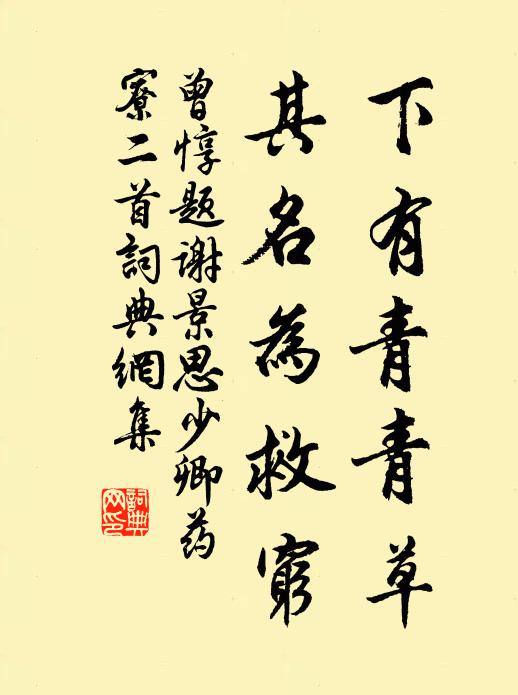 下有青青草
其名為救窮
曾惇题谢景思少卿药
寮二首詞典網集
詞典网印